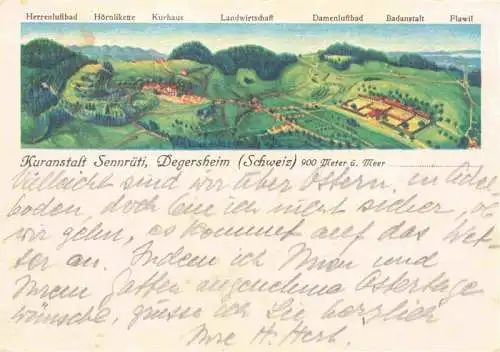 Herrenluftbad Hörnlikette Kurhaus Landwirtschaft Damenluftbad Badanstalt Flawil
Kuranstalt Sennrüti, Degersheim (Schweiz) 900 Meter ü. Meer
Vielleicht sind wir über Ostern, in
boden, doch bin ich nicht sicher, ob
wir gehn, es kommt auf das Wet-
ter an. Indem ich Ihnen und
Ihrem Gatten angenehme Ostertage
wünsche, grüsse ich Sie herzlich
Ihre H.